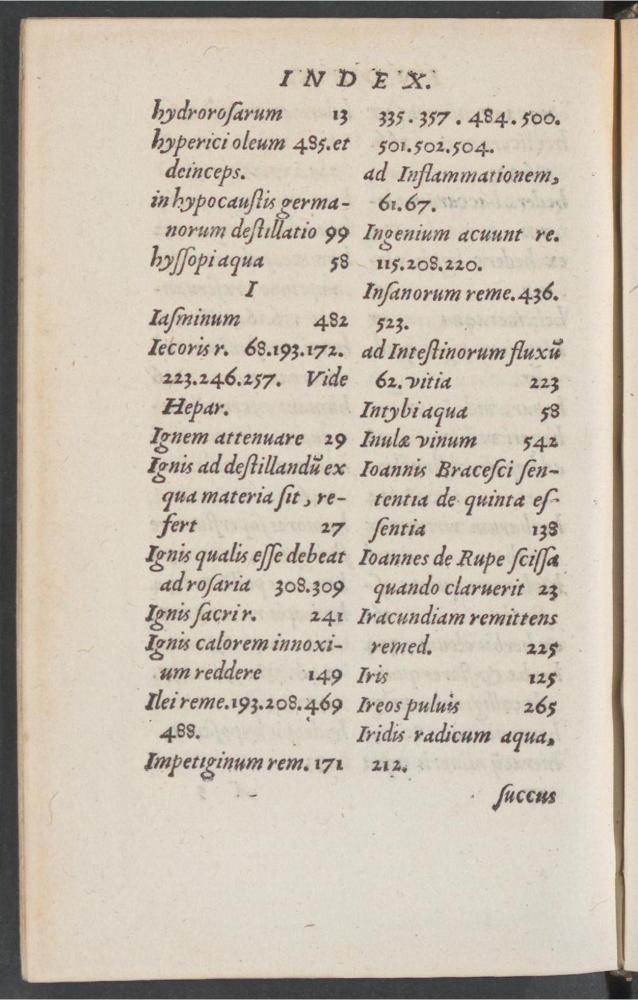 INDEX.
hydroroſarum 13
hyperici oleum 485. et
deinceps.
in hypocauſtis germa-
norum deſtillatio 99
hyſſopi aqua 58
I
Iaſminum 482
Iecoris r. 68.193.172.
223.246.257. Vide
Hepar.
Ignem attenuare 29
Ignis ad deſtillandū ex
qua materia ſit, re-
fert 27
Ignis qualis eſſe debeat
ad roſaria 308.309
Ignis ſacri r. 241
Ignis calorem innoxi-
um reddere 149
Ilei reme.193.208.469
488.
Impetiginum rem. 171
335.357.484.500.
501.502.504.
ad Inflammationem,
61.67.
Ingenium acuunt re.
115.208.220.
Inſanorum reme.436.
523.
ad Inteſtinorum fluxū
62. vitia 223
Intybi aqua 58
Inulæ vinum 542
Ioannis Braceſci ſen-
tentia de quinta eſ-
ſentia 138
Ioannes de Rupe ſciſſa
quando claruerit 23
Iracundiam remittens
remed. 225
Iris 125
Ireos puluis 265
Iridis radicum aqua,
212.
ſuccus